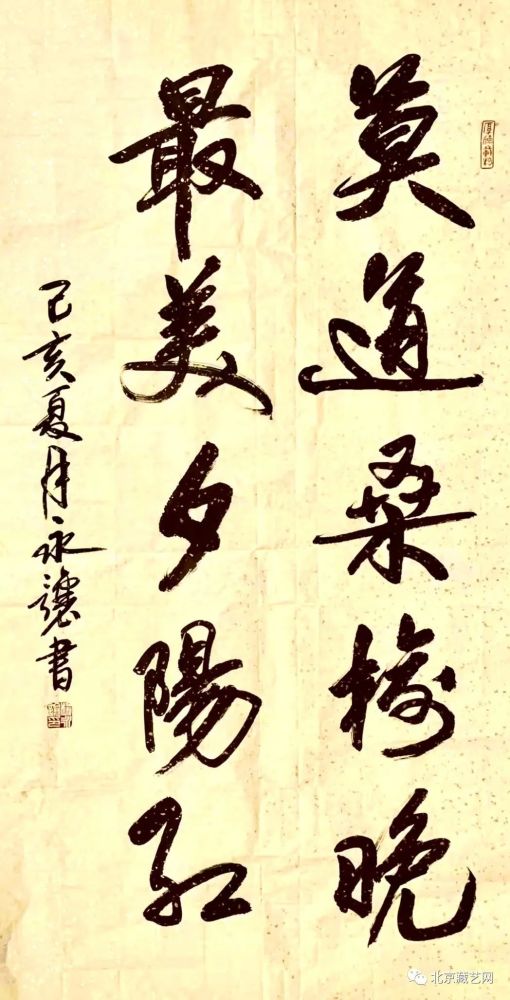 莫道桑榆晚
最美夕陽紅
己亥夏月永讓書
北京藏艺网